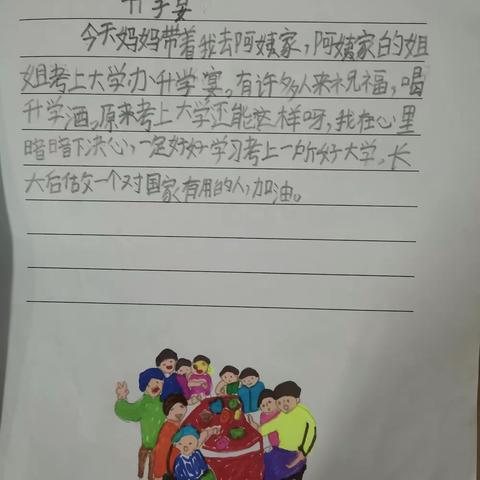 升学宴
今天妈妈带着我去阿姨家，阿姨家的姐
姐考上大学办升学宴。有许多人来祝福，喝
升学酒。原来考上大学还能这样呀，我在心里
暗暗下决心，一定好好学习考上一所好大学。长
大后做一个对国家有用的人，加油。